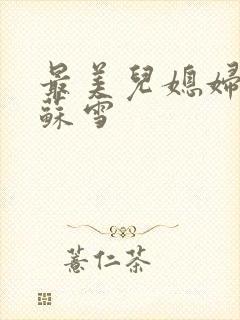 最美兒媳婦
蘇雪
薏仁茶